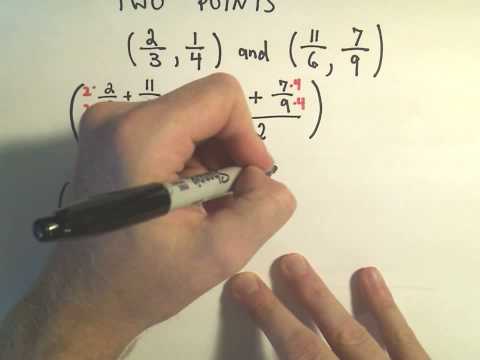 TWO POINTS
(2/3, 1/4) and (11/6, 7/9)
(2· 2/ + 11/ + 7·4/9·4 / 2)
Sharpie